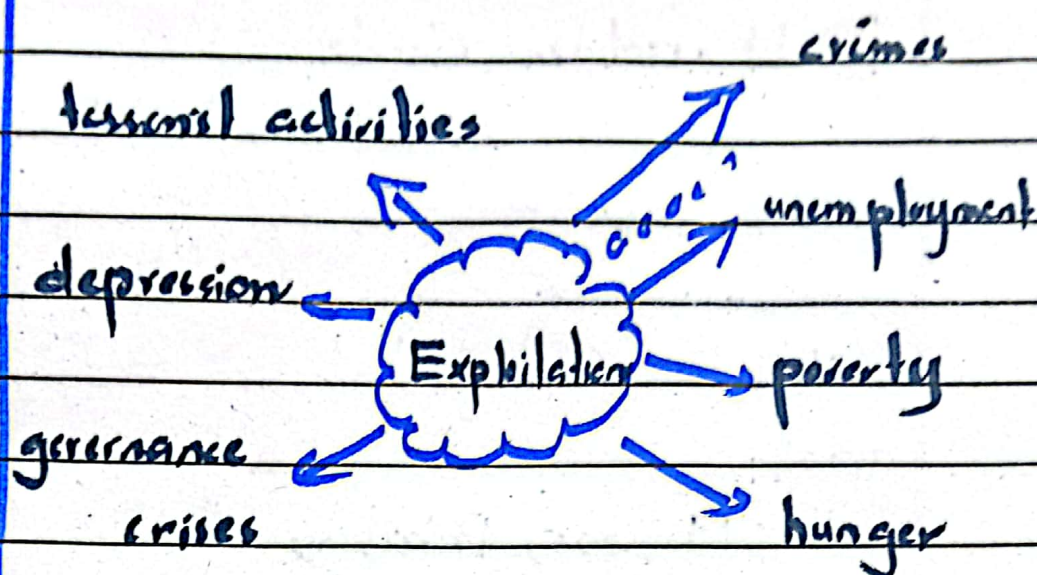 crimes
activities
unemployment
depression
Exploitation
poverty
governance
crises
hunger